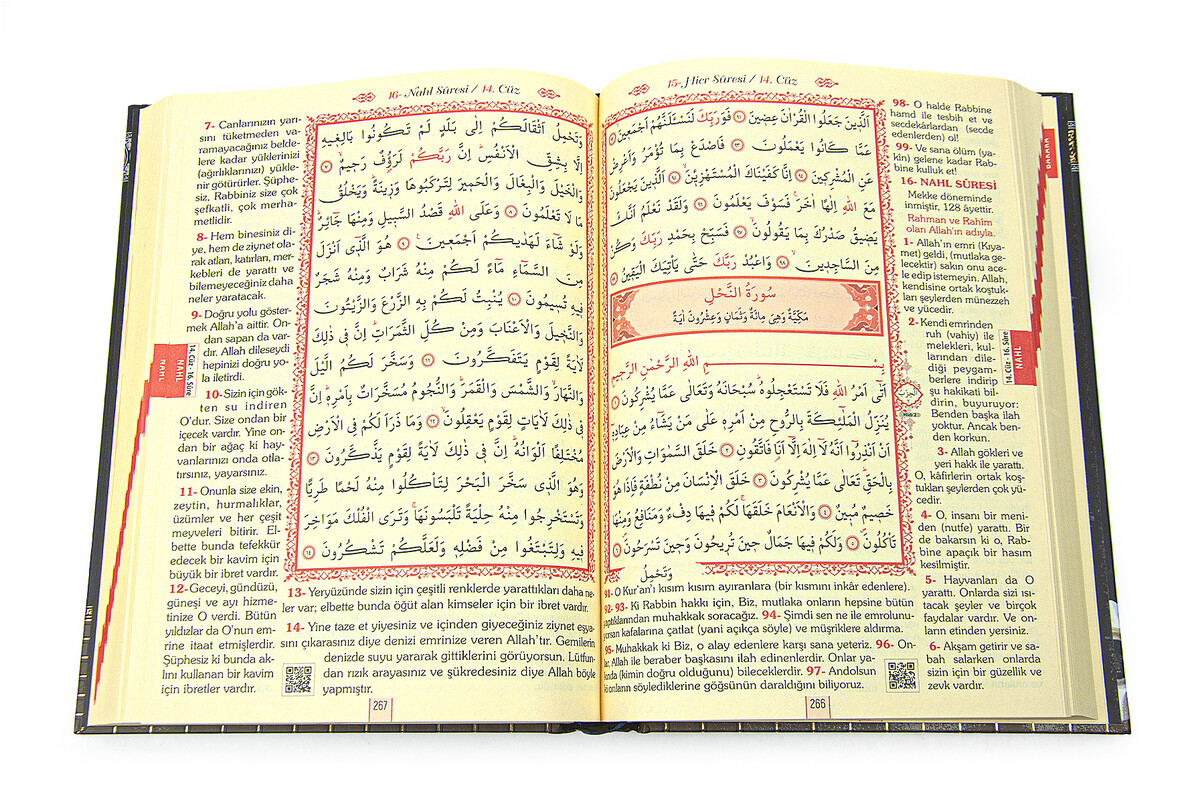 15- Hicr Sûresi / 14. Cüz
اَلَّذ۪ينَ جَعَلُوا الْقُرْاٰنَ عِض۪ينَ ﴿٩١﴾ فَوَرَبِّكَ لَنَسْـَٔلَنَّهُمْ اَجْمَع۪ينَۙ ﴿٩٢﴾
عَمَّا كَانُوا يَعْمَلُونَ ﴿٩٣﴾ فَاصْدَعْ بِمَا تُؤْمَرُ وَاَعْرِضْ
عَنِ الْمُشْرِك۪ينَ ﴿٩٤﴾ اِنَّا كَفَيْنَاكَ الْمُسْتَهْزِء۪ينَۙ ﴿٩٥﴾ اَلَّذ۪ينَ يَجْعَلُونَ
مَعَ اللّٰهِ اِلٰهًا اٰخَرَۚ فَسَوْفَ يَعْلَمُونَ ﴿٩٦﴾ وَلَقَدْ نَعْلَمُ اَنَّكَ
يَض۪يقُ صَدْرُكَ بِمَا يَقُولُونَۙ ﴿٩٧﴾ فَسَبِّحْ بِحَمْدِ رَبِّكَ وَكُنْ
مِنَ السَّاجِد۪ينَۙ ﴿٩٨﴾ وَاعْبُدْ رَبَّكَ حَتّٰى يَأْتِيَكَ الْيَق۪ينُ ﴿٩٩﴾
سُورَةُ النَّحْلِ
مَكِّيَّةٌ وَهِيَ مِائَةٌ وَثَمَانٍ وَعِشْرُونَ اٰيَةً
بِسْمِ اللّٰهِ الرَّحْمٰنِ الرَّح۪يمِ
اَتٰٓى اَمْرُ اللّٰهِ فَلَا تَسْتَعْجِلُوهُۜ سُبْحَانَهُ وَتَعَالٰى عَمَّا يُشْرِكُونَ ﴿١﴾
يُنَزِّلُ الْمَلٰٓئِكَةَ بِالرُّوحِ مِنْ اَمْرِه۪ عَلٰى مَنْ يَشَٓاءُ مِنْ عِبَادِه۪ٓ
اَنْ اَنْذِرُٓوا اَنَّهُ لَٓا اِلٰهَ اِلَّٓا اَنَا۬ فَاتَّقُونِ ﴿٢﴾ خَلَقَ السَّمٰوَاتِ وَالْاَرْضَ
بِالْحَقِّۜ تَعَالٰى عَمَّا يُشْرِكُونَ ﴿٣﴾ خَلَقَ الْاِنْسَانَ مِنْ نُطْفَةٍ فَاِذَا هُوَ
خَص۪يمٌ مُب۪ينٌ ﴿٤﴾ وَالْاَنْعَامَ خَلَقَهَاۚ لَكُمْ ف۪يهَا دِفْءٌ وَمَنَافِعُ وَمِنْهَا
تَأْكُلُونَۖ ﴿٥﴾ وَلَكُمْ ف۪يهَا جَمَالٌ ح۪ينَ تُر۪يحُونَ وَح۪ينَ تَسْرَحُونَۖ ﴿٦﴾
وَتَحْمِلُ
98- O halde Rabbine
hamd ile tesbih et ve
secdekârlardan (secde
edenlerden) ol!
99- Ve sana ölüm (ya-
kin) gelene kadar Rab-
bine kulluk et!
16- NAHL SÛRESİ
Mekke döneminde
inmiştir, 128 âyettir.
Rahman ve Rahîm
olan Allah'ın adıyla.
1- Allah'ın emri (Kıya-
met) geldi, (mutlaka ge-
lecektir) sakın onu ace-
le edip istemeyin. Allah,
kendisine ortak koştuk-
ları şeylerden münezzeh
ve yücedir.
2- Kendi emrinden
ruh (vahiy) ile
melekleri, kul-
larından dile-
diği peygam-
berlere indirip
şu hakikati bil-
dirin, buyuruyor:
Benden başka ilah
yoktur. Ancak ben-
den korkun.
3- Allah gökleri ve
yeri hakk ile yarattı.
O, kâfirlerin ortak koş-
tukları şeylerden çok yü-
cedir.
4- O, insanı bir meni-
den (nutfe) yarattı. Bir
de bakarsın ki o, Rab-
bine apaçık bir hasım
kesilmiştir.
5- Hayvanları da O
yarattı. Onlarda sizi ısı-
tacak şeyler ve birçok
faydalar vardır. Ve on-
ların etinden yersiniz.
6- Akşam getirir ve sa-
bah salarken onlarda
sizin için bir güzellik ve
zevk vardır.
الحزب
14. Cüz - 16. Sûre
NAHL
91- O Kur'an'ı kısım kısım ayıranlara (bir kısmını inkâr edenlere).
92- 93- Ki Rabbin hakkı için, Biz, mutlaka onların hepsine bütün
yaptıklarından muhakkak soracağız. 94- Şimdi sen ne ile emrolunu-
yorsan kafalarına çatlat (yani açıkça söyle) ve müşriklere aldırma.
95- Muhakkak ki Biz, o alay edenlere karşı sana yeteriz. 96- On-
lar, Allah ile beraber başkasını ilah edinenlerdir. Onlar ya-
kında (kimin doğru olduğunu) bileceklerdir. 97- Andolsun
ki onların söylediklerine göğsünün daraldığını biliyoruz.
266
16- Nahl Sûresi / 14. Cüz
وَتَحْمِلُ اَثْقَالَكُمْ اِلٰى بَلَدٍ لَمْ تَكُونُوا بَالِغ۪يهِ
اِلَّا بِشِقِّ الْاَنْفُسِۜ اِنَّ رَبَّكُمْ لَرَؤُ۫فٌ رَح۪يمٌۙ ﴿٧﴾
وَالْخَيْلَ وَالْبِغَالَ وَالْحَم۪يرَ لِتَرْكَبُوهَا وَز۪ينَةًۜ وَيَخْلُقُ
مَا لَا تَعْلَمُونَ ﴿٨﴾ وَعَلَى اللّٰهِ قَصْدُ السَّب۪يلِ وَمِنْهَا جَٓائِرٌۜ
وَلَوْ شَٓاءَ لَهَدٰيكُمْ اَجْمَع۪ينَ۟ ﴿٩﴾ هُوَ الَّذ۪ٓي اَنْزَلَ
مِنَ السَّمَٓاءِ مَٓاءً لَكُمْ مِنْهُ شَرَابٌ وَمِنْهُ شَجَرٌ
ف۪يهِ تُس۪يمُونَ ﴿١٠﴾ يُنْبِتُ لَكُمْ بِهِ الزَّرْعَ وَالزَّيْتُونَ
وَالنَّخ۪يلَ وَالْاَعْنَابَ وَمِنْ كُلِّ الثَّمَرَاتِۜ اِنَّ ف۪ي ذٰلِكَ
لَاٰيَةً لِقَوْمٍ يَتَفَكَّرُونَ ﴿١١﴾ وَسَخَّرَ لَكُمُ الَّيْلَ
وَالنَّهَارَۙ وَالشَّمْسَ وَالْقَمَرَۜ وَالنُّجُومُ مُسَخَّرَاتٌ بِاَمْرِه۪ۜ اِنَّ
ف۪ي ذٰلِكَ لَاٰيَاتٍ لِقَوْمٍ يَعْقِلُونَۙ ﴿١٢﴾ وَمَا ذَرَاَ لَكُمْ فِي الْاَرْضِ
مُخْتَلِفًا اَلْوَانُهُۜ اِنَّ ف۪ي ذٰلِكَ لَاٰيَةً لِقَوْمٍ يَذَّكَّرُونَ ﴿١٣﴾
وَهُوَ الَّذ۪ي سَخَّرَ الْبَحْرَ لِتَأْكُلُوا مِنْهُ لَحْمًا طَرِيًّا
وَتَسْتَخْرِجُوا مِنْهُ حِلْيَةً تَلْبَسُونَهَاۚ وَتَرَى الْفُلْكَ مَوَاخِرَ
ف۪يهِ وَلِتَبْتَغُوا مِنْ فَضْلِه۪ وَلَعَلَّكُمْ تَشْكُرُونَ ﴿١٤﴾
7- Canlarınızın yarı-
sını tüketmeden va-
ramayacağınız belde-
lere kadar yüklerinizi
(ağırlıklarınızı) yükle-
nir götürürler. Şüphe-
siz, Rabbiniz size çok
şefkatli, çok merha-
metlidir.
8- Hem binesiniz di-
ye, hem de ziynet ola-
rak atları, katırları, mer-
kebleri de yarattı ve
bilemeyeceğiniz daha
neler yaratacak.
9- Doğru yolu göster-
mek Allah'a aittir. On-
dan sapan da var-
dır. Allah dileseydi
hepinizi doğru yo-
la iletirdi.
10- Sizin için gök-
ten su indiren
O'dur. Size ondan bir
içecek vardır. Yine on-
dan bir ağaç ki hay-
vanlarınızı onda otla-
tırsınız, yayarsınız.
11- Onunla size ekin,
zeytin, hurmalıklar,
üzümler ve her çeşit
meyveleri bitirir. El-
bette bunda tefekkür
edecek bir kavim için
büyük bir ibret vardır.
12- Geceyi, gündüzü,
güneşi ve ayı hizme-
tinize O verdi. Bütün
yıldızlar da O'nun em-
rine itaat etmişlerdir.
Şüphesiz ki bunda ak-
lını kullanan bir kavim
için ibretler vardır.
14. Cüz - 16. Sûre
NAHL
NAHL
13- Yeryüzünde sizin için çeşitli renklerde yarattıkları daha ne-
ler var; elbette bunda öğüt alan kimseler için bir ibret vardır.
14- Yine taze et yiyesiniz ve içinden giyeceğiniz ziynet eşya-
sını çıkarasınız diye denizi emrinize veren Allah'tır. Gemilerin
denizde suyu yararak gittiklerini görüyorsun. Lütfun-
dan rızık arayasınız ve şükredesiniz diye Allah böyle
yapmıştır.
267